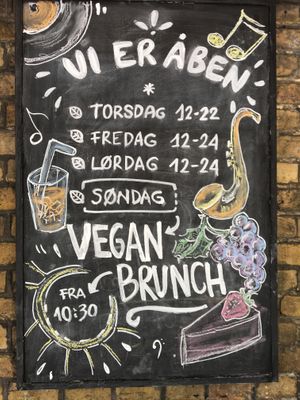 VI ER ÅBEN
*
TORSDAG 12-22
FREDAG 12-24
LØRDAG 12-24
SØNDAG
VEGAN
BRUNCH
FRA
10:30